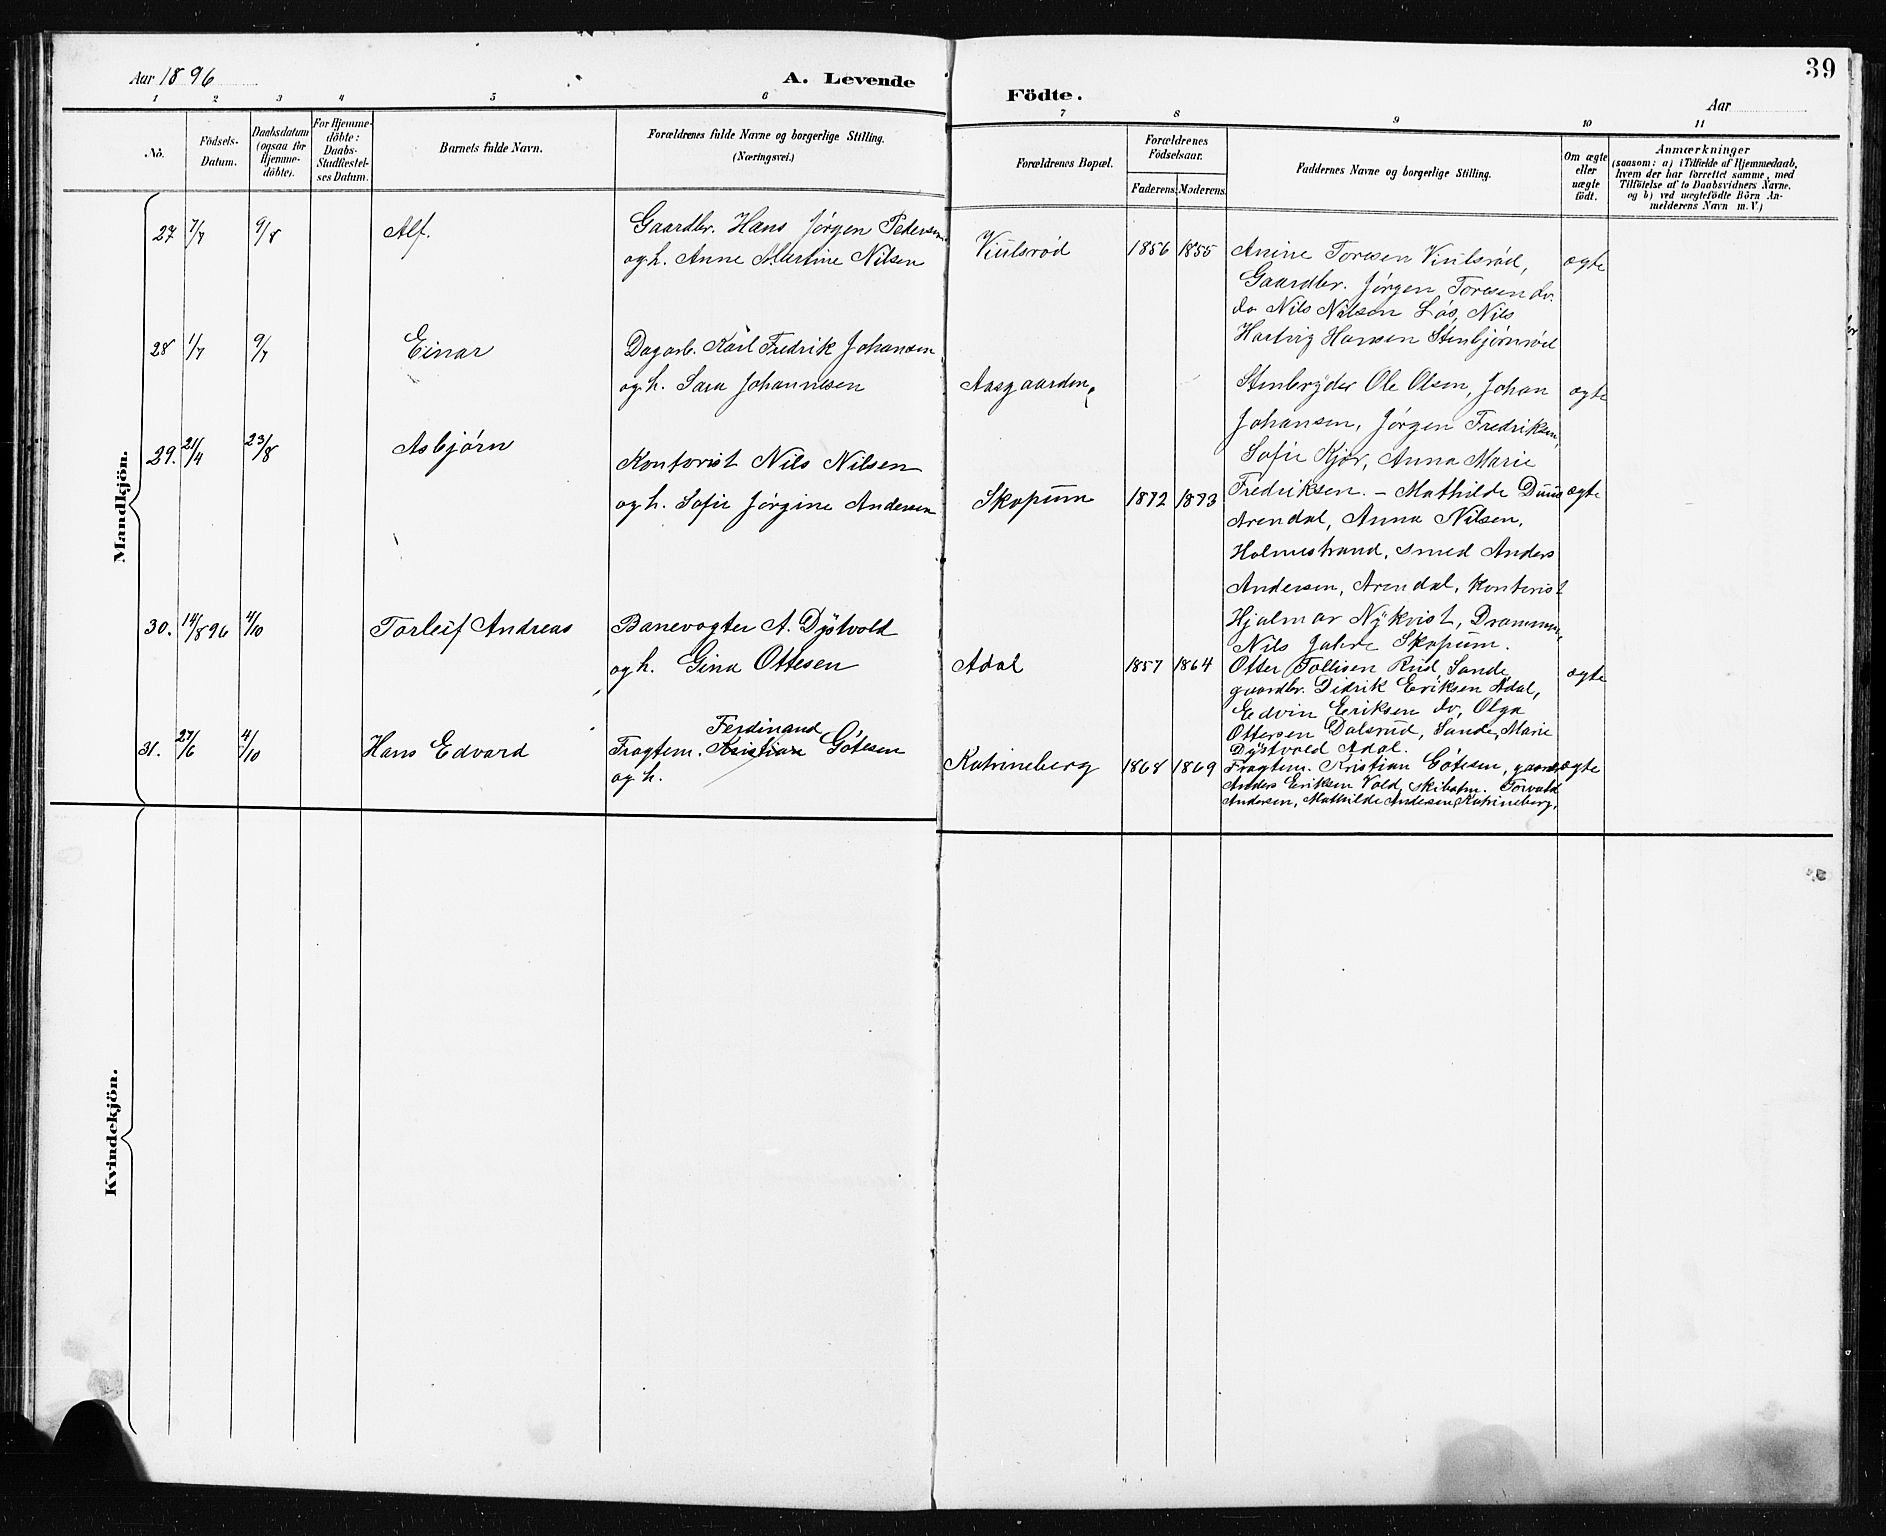 39
Aar 1896
A. Levende Födte.
Aar
1 2 3 4 5 6 7 8 9 10 11
No.
Födsels-Datum.
Daabsdatum
(ogsaa for
Hjemme-
döbte).
For Hjemme-
döbte:
Daabs-
Stadfæstel-
ses Datum.
Barnets fulde Navn.
Forældrenes fulde Navne og borgerlige Stilling.
(Næringsvei.)
Forældrenes Bopæl.
Forældrenes
Födselsaar.
Faderens. Moderens.
Faddernes Navne og borgerlige Stilling.
Om ægte
eller
uægte
födt.
Anmærkninger
(saasom: a) i Tilfælde af Hjemmedaab,
hvem der har forrettet samme, med
Tilföielse af to Daabsvidners Navne,
og b) ved uægtefödte Börn An-
melderens Navn m. V.)
Mandkjön.
27 7/7 9/8 Alf.
Gaardbr. Hans Jørgen Pedersen
og h. Anne Martine Nilsen
Viulsrød 1856 1855
Anine Toresen Viulsrød,
Gaardbr. Jørgen Toresen do.
do Nils Nilsen Løs, Nils
Hartvig Hansen Stenbjørnrød
ægte
28 1/7 9/7 Einar
Dagarb. Karl Fredrik Johansen
og h. Sara Johannesen
Aasgaarden
Stenbryder Ole Olsen, Johan
Johansen, Jørgen Fredriksen,
Sofie Kjør, Anna Marie
Fredriksen. –
ægte
29. 21/4 23/8 Asbjørn
Kontorist Nils Nilsen
og h. Sofie Jørgine Andersen
Skopum 1872 1873
Mathilde Duus
Arendal, Anna Nilsen,
Holmestrand, smed Anders
Andersen, Arendal, Kontorist
Hjalmar Nykvist, Drammen,
Nils Jahre Skopum.
ægte
30. 14/8 96 4/10 Torleif Andreas
Banevogter A. Dystvold
og h. Gina Ottesen
Adal 1857 1864
Otter Tollisen Rud, Sande,
gaardbr. Didrik Eriksen Adal,
Edvin Eriksen do, Olga
Ottersen Dalsrud, Sande, Marie
Dystvold Adal.
ægte
31. 27/6 4/10 Hans Edvard
Ferdinand
Fragtem. Kristian Götesen
og h.
Katrineberg 1868 1869
Fragtem. Kristian Götesen, gaardbr.
Anders Eriksen Vold, skibstm. Torvald
Andersen, Mathilde Andersen, Katrineberg,
ægte
Kvindekjön.